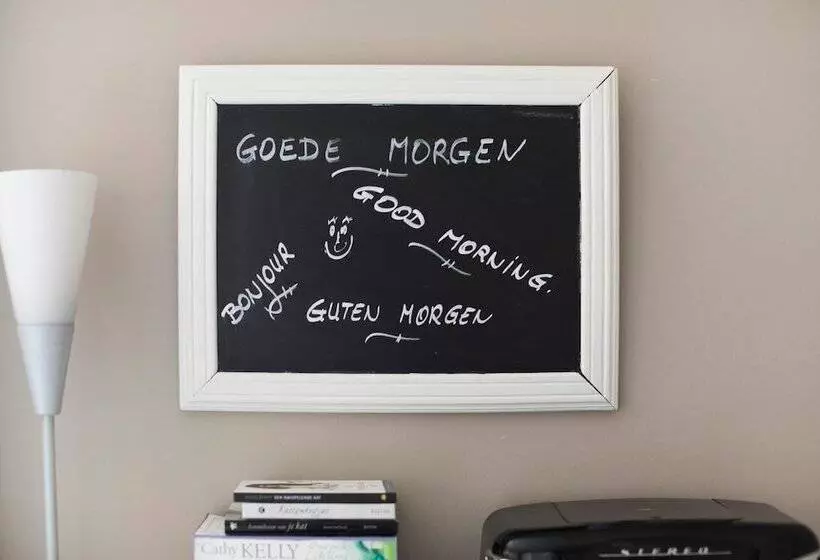 GOEDE MORGEN
GOOD MORNING.
BONJOUR
GUTEN MORGEN
Cathy KELLY
STEREO